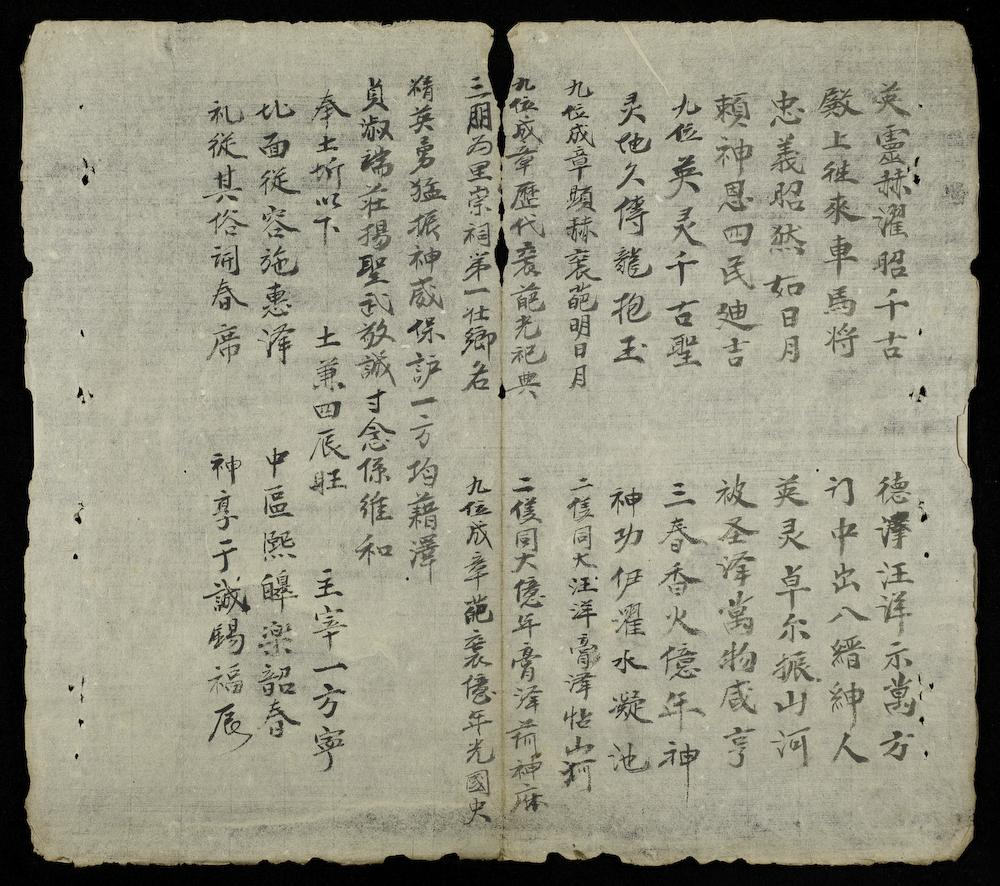 英靈赫濯昭千古 德澤汪洋示萬方
殿上往來車馬將 门中出入縉紳人
忠義昭然如日月 英灵卓尔振山河
賴神恩四民迪吉 被圣泽萬物咸亨
九位英灵千古聖 三春香火億年神
灵地久傳龍抱玉 神功伊濯水凝池
九位成章顕赫褒葩明日月 二隻同大汪洋膏泽怙山河
九位成章歷代褒葩光祀典 二隻同大億年膏泽荷神庥
三朋为里崇祠弟一壮鄉名 九位成章葩褒億年光國史
精英勇猛振神威保護一方均藉澤
貞淑端莊揚聖武敬誠寸念係维和
奉土圻以下 土兼四辰旺 主宰一方寜
北面從容施惠泽 中區熙皞楽韶春
礼從其俗祠春席 神享于誠賜福辰